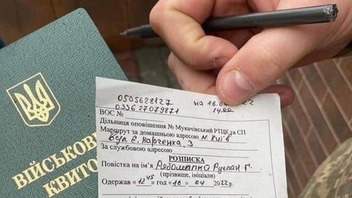 ВІЙСЬКОВ
КВИТО
0505628127
033627079271
на 16.04
1400
ВОС №
Дільниця оповіщення № Мукачівський РТЦК та СП
Маршрут за домашньою адресою м. Київ
вул Є. Харченка, 3
За службовою адресою
РОЗПИСКА
Повістка на ім'я Рядошапка Руслан Г.
(прізвище, ініціали)
Одержав «12 45 год «16» 04 2022р.
(підпис)